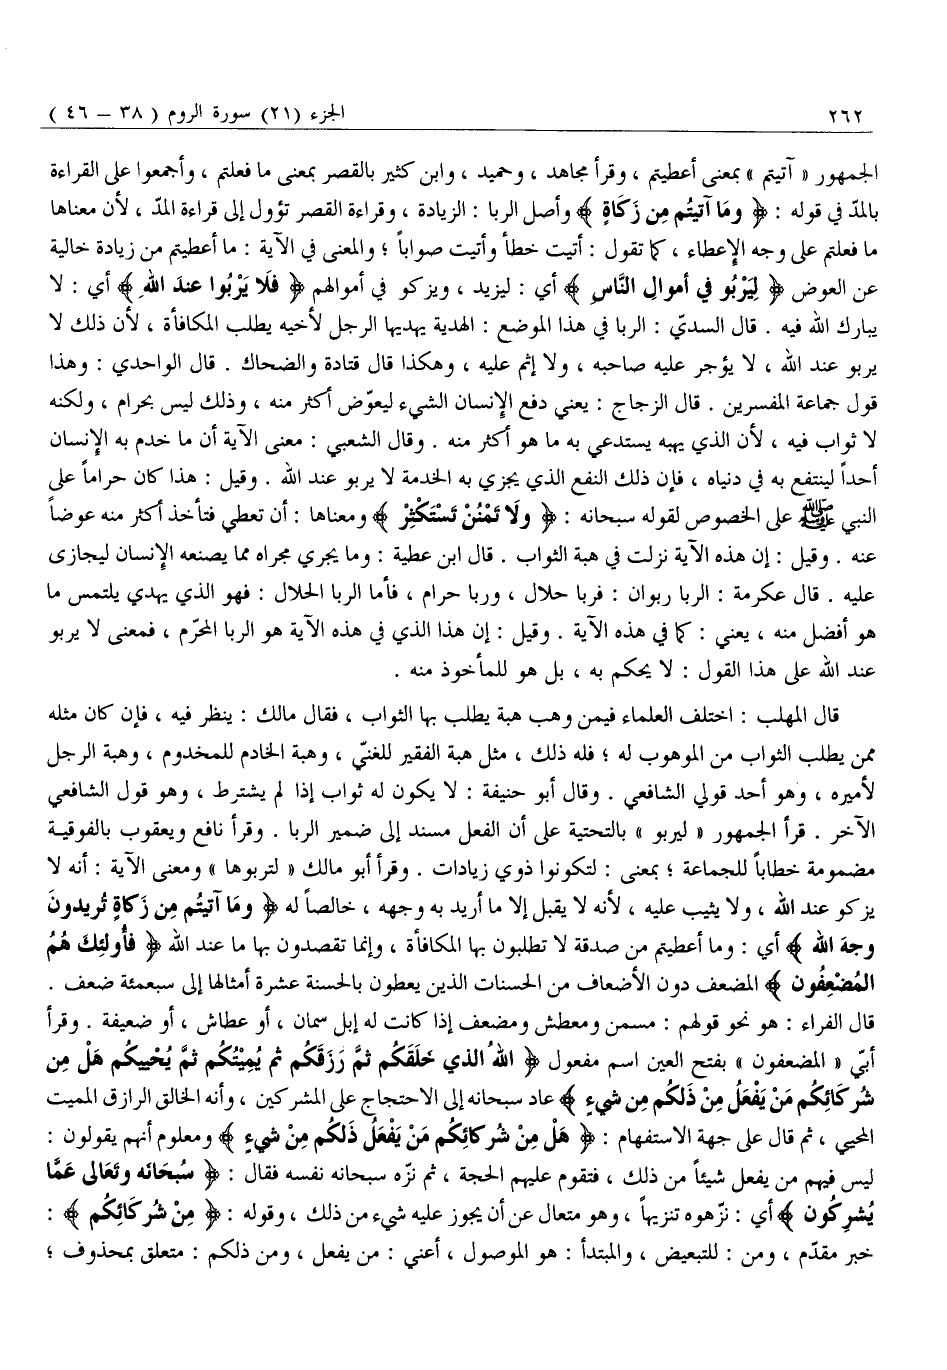 ٢٦٢ الجزء (٢١) سورة الروم ( ٣٨ – ٤٦ )
الجمهور « آتيتم » بمعنى أعطيتم ، وقرأ مجاهد ، وحميد ، وابن كثير بالقصر بمعنى ما فعلتم ، وأجمعوا على القراءة
بالمدّ في قوله : ﴿ وما آتيتُم مِن زَكَاةٍ ﴾ وأصل الربا : الزيادة ، وقراءة القصر تؤول إلى قراءة المدّ ، لأن معناها
ما فعلتم على وجه الإعطاء ، كما تقول : أتيت خطأ وأتيت صواباً ؛ والمعنى في الآية : ما أعطيتم من زيادة خالية
عن العوض ﴿ لِيَرْبُو في أموالِ النَّاسِ ﴾ أي : ليزيد ، ويزكو في أموالهم ﴿ فَلَا يَرْبُوا عندَ اللهِ ﴾ أي : لا
يبارك الله فيه . قال السديّ : الربا في هذا الموضع : الهدية يهديها الرجل لأخيه يطلب المكافأة ، لأن ذلك لا
يربو عند الله ، لا يؤجر عليه صاحبه ، ولا إثم عليه ، وهكذا قال قتادة والضحاك . قال الواحدي : وهذا
قول جماعة المفسرين . قال الزجاج : يعني دفع الإنسان الشيء ليعوّض أكثر منه ، وذلك ليس بحرام ، ولكنه
لا ثواب فيه ، لأن الذي يهبه يستدعي به ما هو أكثر منه . وقال الشعبي : معنى الآية أن ما خدم به الإنسان
أحداً لينتفع به في دنياه ، فإن ذلك النفع الذي يجزي به الخدمة لا يربو عند الله . وقيل : هذا كان حراماً على
النبي ﷺ على الخصوص لقوله سبحانه : ﴿ ولَا تَمْنُنْ تَسْتَكْثِرْ ﴾ ومعناها : أن تعطي فتأخذ أكثر منه عوضاً
عنه . وقيل : إن هذه الآية نزلت في هبة الثواب . قال ابن عطية : وما يجري مجراه مما يصنعه الإنسان ليجازى
عليه . قال عكرمة : الربا ربوان : فربا حلال ، وربا حرام ، فأما الربا الحلال : فهو الذي يهدي يلتمس ما
هو أفضل منه ، يعني : كما في هذه الآية . وقيل : إن هذا الذي في هذه الآية هو الربا المحرّم ، فمعنى لا يربو
عند الله على هذا القول : لا يحكم به ، بل هو للمأخوذ منه .
قال المهلب : اختلف العلماء فيمن وهب هبة يطلب بها الثواب ، فقال مالك : ينظر فيه ، فإن كان مثله
ممن يطلب الثواب من الموهوب له ؛ فله ذلك ، مثل هبة الفقير للغنيّ ، وهبة الخادم للمخدوم ، وهبة الرجل
لأميره ، وهو أحد قولي الشافعي . وقال أبو حنيفة : لا يكون له ثواب إذا لم يشترط ، وهو قول الشافعي
الآخر . قرأ الجمهور « ليربو » بالتحتية على أن الفعل مسند إلى ضمير الربا . وقرأ نافع ويعقوب بالفوقية
مضمومة خطاباً للجماعة ؛ بمعنى : لتكونوا ذوي زيادات . وقرأ أبو مالك « لتربوها » ومعنى الآية : أنه لا
يزكو عند الله ، ولا يثيب عليه ، لأنه لا يقبل إلا ما أريد به وجهه ، خالصاً له ﴿ وما آتيتُم مِن زكاةٍ تُريدونَ
وجهَ الله ﴾ أي : وما أعطيتم من صدقة لا تطلبون بها المكافأة ، وإنما تقصدون بها ما عند الله ﴿ فأُولئِكَ هُمُ
المُضْعِفُون ﴾ المضعف دون الأضعاف من الحسنات الذين يعطون بالحسنة عشرة أمثالها إلى سبعمئة ضعف .
قال الفراء : هو نحو قولهم : مسمن ومعطش ومضعف إذا كانت له إبل سمان ، أو عطاش ، أو ضعيفة . وقرأ
أبيّ « المضعفون » بفتح العين اسم مفعول ﴿ اللهُ الذي خلَقَكُم ثمَّ رَزَقَكُم ثم يُمِيْتُكُم ثمَّ يُحْيِيكُم هَلْ مِن
شُركائِكُم مَنْ يَفْعَلُ مِنْ ذَلكُم مِن شيءٍ ﴾ عاد سبحانه إلى الاحتجاج على المشركين ، وأنه الخالق الرازق المميت
المحيي ، ثم قال على جهة الاستفهام : ﴿ هَلْ مِنْ شركائِكُم مَنْ يَفْعَلُ ذَلكُم مِنْ شيءٍ ﴾ ومعلوم أنهم يقولون :
ليس فيهم من يفعل شيئاً من ذلك ، فتقوم عليهم الحجة ، ثم نزّه سبحانه نفسه فقال : ﴿ سبُحَانَه وتَعَالى عَمَّا
يُشرِكُون ﴾ أي : نزّهوه تنزيهاً ، وهو متعال عن أن يجوز عليه شيء من ذلك ، وقوله : ﴿ مِنْ شُركَائِكُم ﴾ :
خبر مقدّم ، ومن : للتبعيض ، والمبتدأ : هو الموصول ، أعني : من يفعل ، ومن ذلكم : متعلق بمحذوف ؛